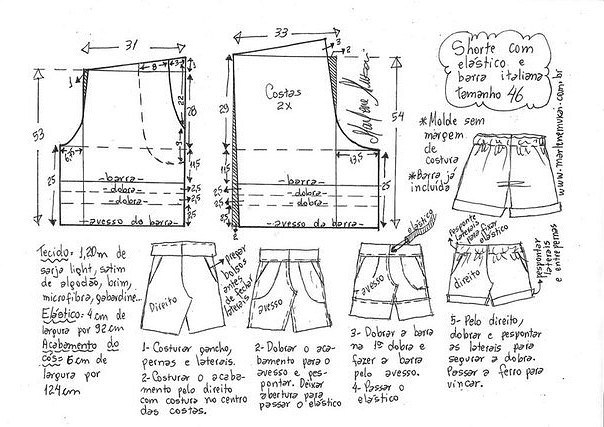 31
33
8
3
3
2
1
1
53
28
22
28
29
54
9
6,5
11,5
11,5
13,5
25
25
25
2,5
2,5
2,5
2,5
2
Costas
2X
-barra-
-dobra-
-dobra-
-avesso da barra-
-barra-
-dobra-
-dobra-
-avesso da barra-
Marlene Mukai
Shorte com
elástico e
barra italiana
tamanho 46
*Molde sem
margem
de
costura
*Barra já
incluída
www.marlenemukai.com.br
Tecido= 1,20m de
sarja light, satim
de algodão, brim,
microfibra, gabardine...
Elástico= 4cm de
largura por 92cm
Acabamento do
cós= 6cm de
largura por
124cm
Direito
pregar
bolsos
antes
de fechar
laterais
avesso
elástico
avesso
pesponte
laterais
para fixar
elástico
direito
pespontar
laterais
e entrepernas
1- Costurar gancho,
pernas e laterais.
2- Costurar o acaba-
mento pelo direito
com costura no centro
das costas.
2- Dobrar o aca-
bamento para o
avesso e pes-
pontar. Deixar
abertura para
passar o elástico
3- Dobrar a barra
na 1ª dobra e
fazer a barra
pelo avesso.
4- Passar o
elástico
5- Pelo direito,
dobrar e pespontar
as laterais para
segurar a dobra.
Passar a ferro para
vincar.